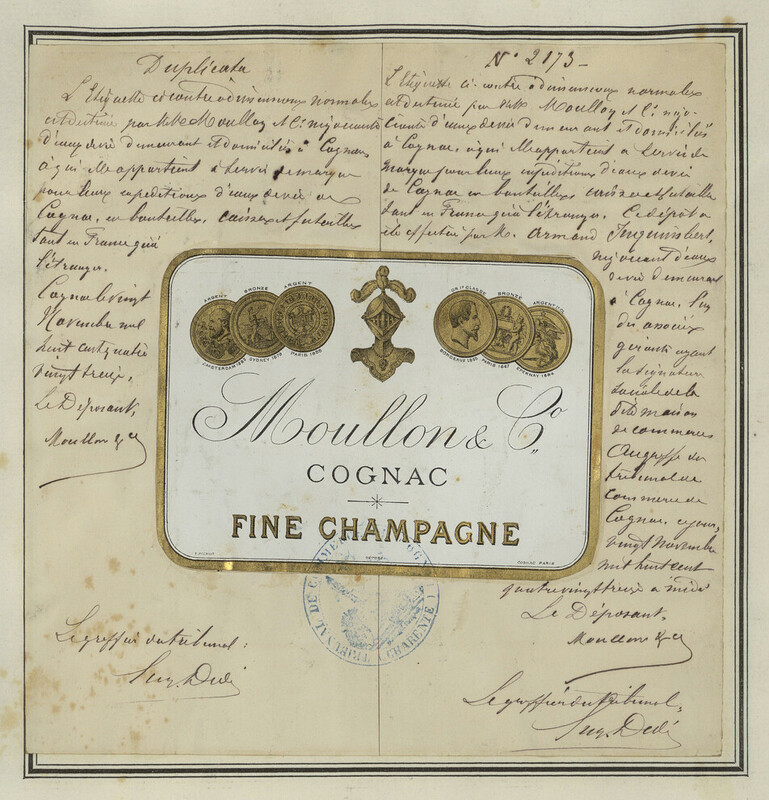 Duplicata
L'Etiquette ci-contre à dimensions normales
est destinée par MM. Moullon & Cie négociants
d'eaux-de-vie demeurant et domiciliés à Cognac
à qui elle appartient à servir de marque
pour leurs expéditions d'eaux-de-vie de
Cognac, en bouteilles, caisses et futailles
tant en France qu'à
l'étranger.
Cognac le vingt
Novembre mil
huit cent quatre
vingt treize,
Le Déposant,
Moullon & Cie
Le greffier du tribunal,
N° 2173 -
L'Etiquette ci-contre à dimensions normales
est destinée par MM. Moullon & Cie négo-
ciants d'eaux-de-vie demeurant et domiciliés
à Cognac, à qui elle appartient à servir de
marque pour leurs expéditions d'eaux-de-vie
de Cognac en bouteilles caisses et futailles
tant en France qu'à l'étranger. Ce dépôt a
été effectué par M. Armand Inquimbert,
négociant d'eaux
de-vie demeurant
à Cognac, l'un
des associés
gérants ayant
la signature
sociale de la
dite maison
de commerce
Au greffe du
tribunal de
Commerce de
Cognac, ce jour,
vingt Novembre
mil huit cent
quatre vingt treize à midi
Le Déposant,
Moullon & Cie
Le greffier du tribunal,
ARGENT BRONZE ARGENT
AMSTERDAM 1883 SYDNEY 1879 PARIS 1855
OR 1e CLASSE BRONZE ARGENT
BORDEAUX 1865 PARIS 1867 EPERNAY
Moullon & Co
COGNAC
FINE CHAMPAGNE
DÉPOSÉ
PARIS
TRIBUNAL DE COMMERCE COGNAC (CHARENTE)